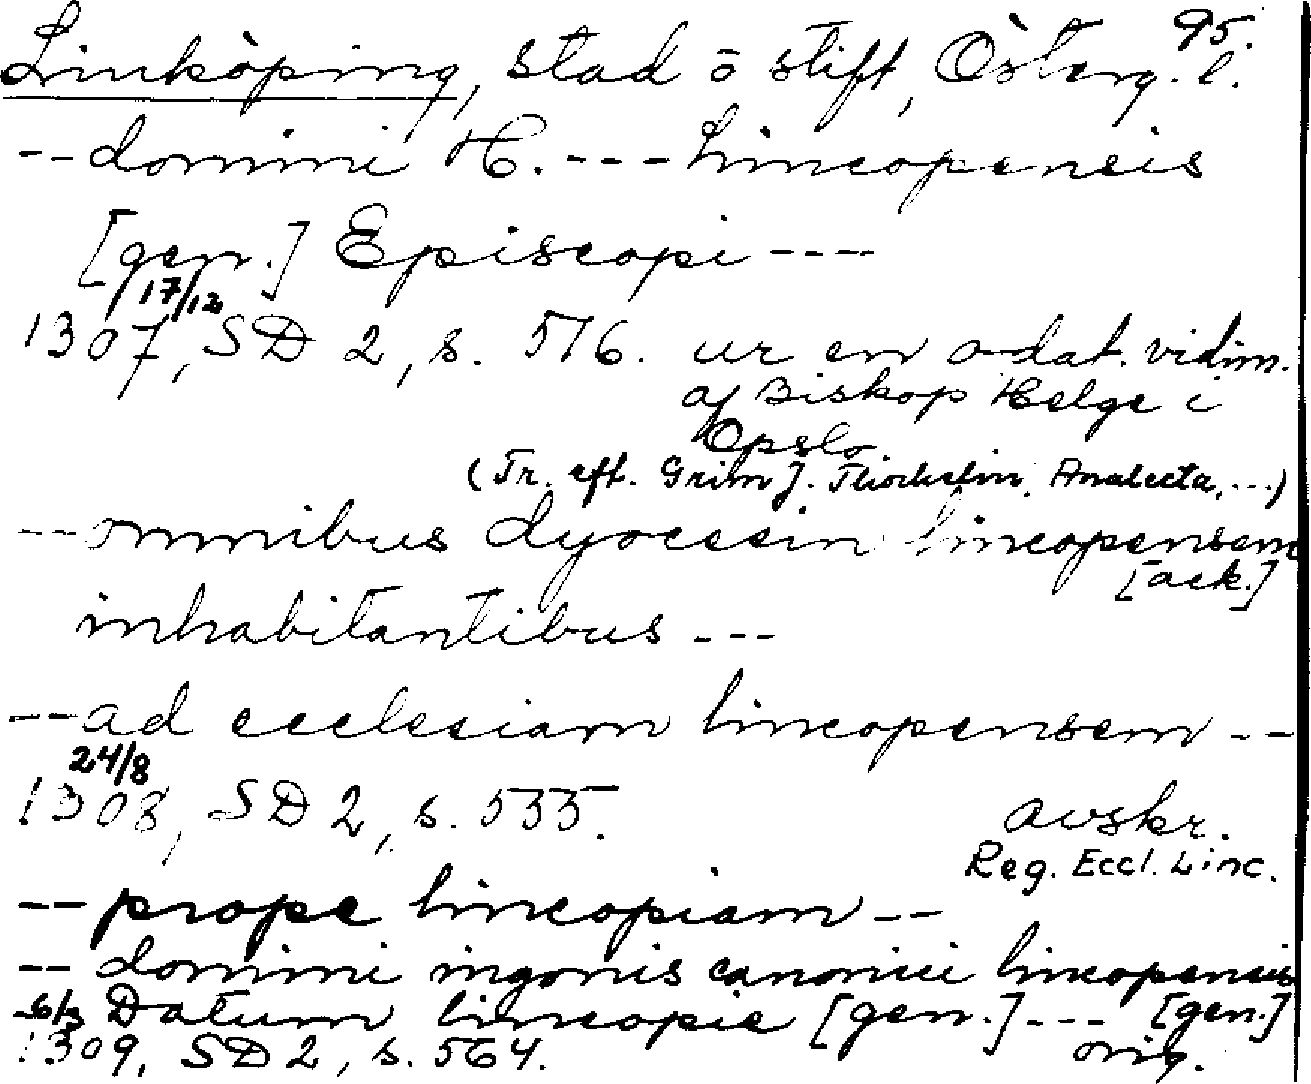 95.
Linköping, stad o stift, Österg. l.
-- domini H. --- Lincopensis
[gen.] Episcopi ----
17/12
1307, SD 2, s. 516. ur en odat. vidim.
af Biskop Helge i
Opslo
(Tr. eft. Grim J. Thorkelin, Analecta, ...)
-- omnibus dyocesin lincopensem
[ack.]
inhabitantibus ---
-- ad ecclesiam lincopensem --
24/8
1308, SD 2, s. 535. avskr.
Reg. Eccl. Linc.
-- prope lincopiam --
-- domini ingonis canonici lincopensis
Datum lincopie [gen.] --- [gen.]
1309, SD 2, s. 564. orig.